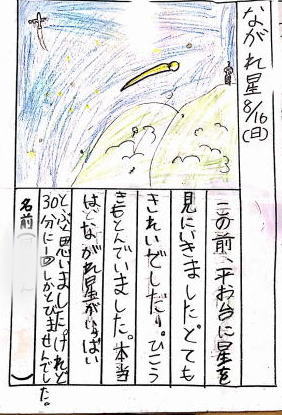 ながれ星 8/16(日)
この前、平お台に星を
見にいきました。とても
きれいでした。ひこう
きもとんでいました。本当
はながれ星がいっぱい
とぶと思いましたけれど
30分に一回しかとびませんでした。
名前( )